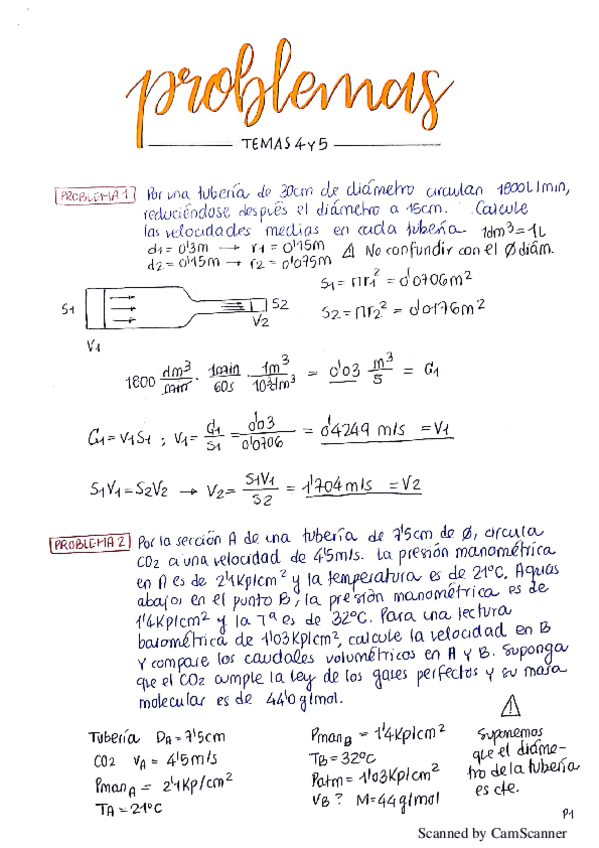 problemas
TEMAS 4 y 5
PROBLEMA 1 Por una tubería de 30cm de diámetro circulan 1800L/min,
reduciéndose después el diámetro a 15cm. Calcule
las velocidades medias en cada tubería. 1dm³=1L
d1=0'3m → r1=0'15m ⚠ No confundir con el Ø diám.
d2=0'15m → r2=0'075m
S1=πr1²=0'0706m²
S2=πr2²=0'0176m²
S1
S2
V2
V1
1800 dm³/min · 1min/60s · 1m³/10³dm³ = 0'03 m³/s = G1
G1=V1S1 ; V1= G1/S1 = 0'03/0'0706 = 0'4249 m/s =V1
S1V1=S2V2 → V2= S1V1/S2 = 1'704m/s =V2
PROBLEMA 2 Por la sección A de una tubería de 7'5cm de Ø, circula
CO2 a una velocidad de 4'5m/s. La presión manométrica
en A es de 2'1Kp/cm² y la temperatura es de 21ºC. Aguas
abajo, en el punto B, la presión manométrica es de
1'4Kp/cm² y la Tª es de 32ºC. Para una lectura
barométrica de 1'03Kp/cm², calcule la velocidad en B
y compare los caudales volumétricos en A y B. Suponga
que el CO2 cumple la ley de los gases perfectos y su masa
molecular es de 44'0g/mol.
Tubería DA=7'5cm
CO2 VA=4'5m/s
PmanA = 2'1Kp/cm²
TA=21ºC
PmanB = 1'4Kp/cm²
TB=32ºC
Patm=1'03Kp/cm²
VB? M=44g/mol
Suponemos
que el diáme-
tro de la tubería
es cte.
P1
Scanned by CamScanner